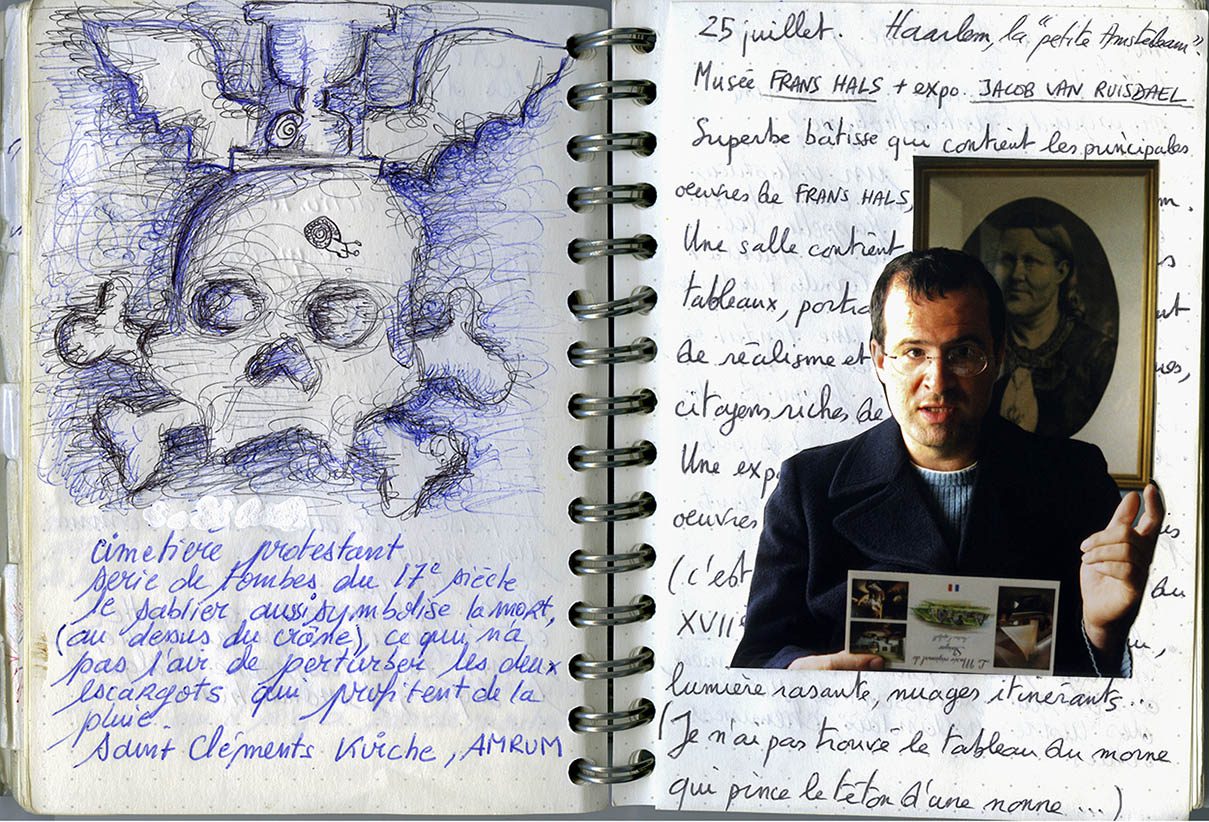 cimetière protestant
serie de tombes du 17e siècle
le sablier aussi symbolise la mort,
(au dessus du crâne), ce qui n'a
pas l'air de perturber les deux
escargots qui profitent de la
pluie.
Saint Cléments Kirche, AMRUM
25 juillet. Haarlem, la "petite Amsterdam".
Musée FRANS HALS + expo. JACOB VAN RUISDAEL
Superbe bâtisse qui contient les principales
oeuvres de FRANS HALS,
Une salle contient
tableaux,
de réalisme et
citoyens riches de
Une
oeuvres
(c'est du
XVIIe
lumière rasante, nuages itinérants...
(Je n'ai pas trouvé le tableau du moine
qui pince le téton d'une nonne ...)